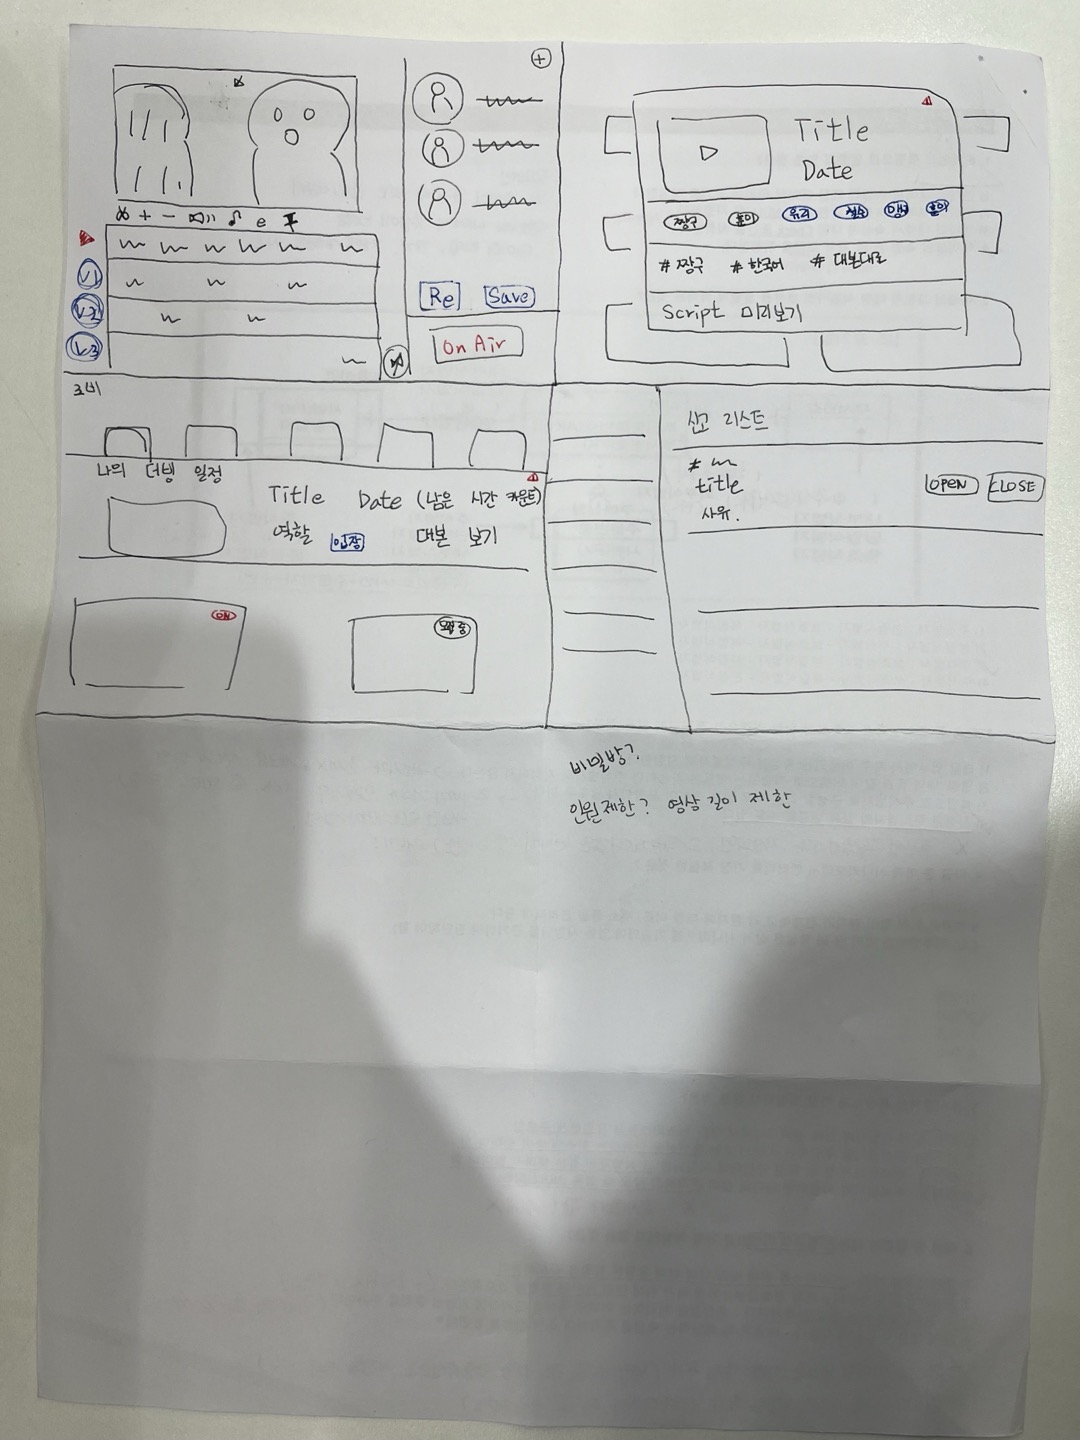 Re Save
On Air
V1
V2
V3
Title
Date
짱구 훈이 유리 철수 맹구 훈이
# 짱구 # 한국어 # 대본대로
Script 미리보기
로비
나의 더빙 일정
Title Date (남은 시간 카운트)
역할 입장 대본 보기
ON
모집 중
신고 리스트
#
title
사유.
OPEN CLOSE
비밀방?
인원제한? 영상 길이 제한